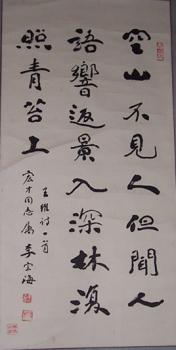 空山不見人但聞人
語響返景入深林復
照青苔上
王維詩一首
宏才同志属 李宝海